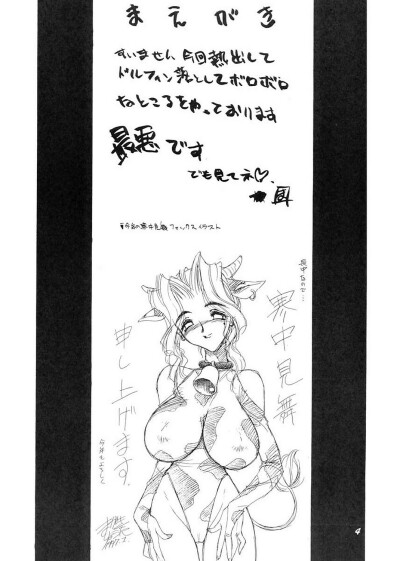 まえがき
すいません今回熱出して
ドルフィン落としてボロボロ
なところをやっております
最悪です
でも見てネ♡.
寒中見舞
申し上げます.
今年もよろしく
4